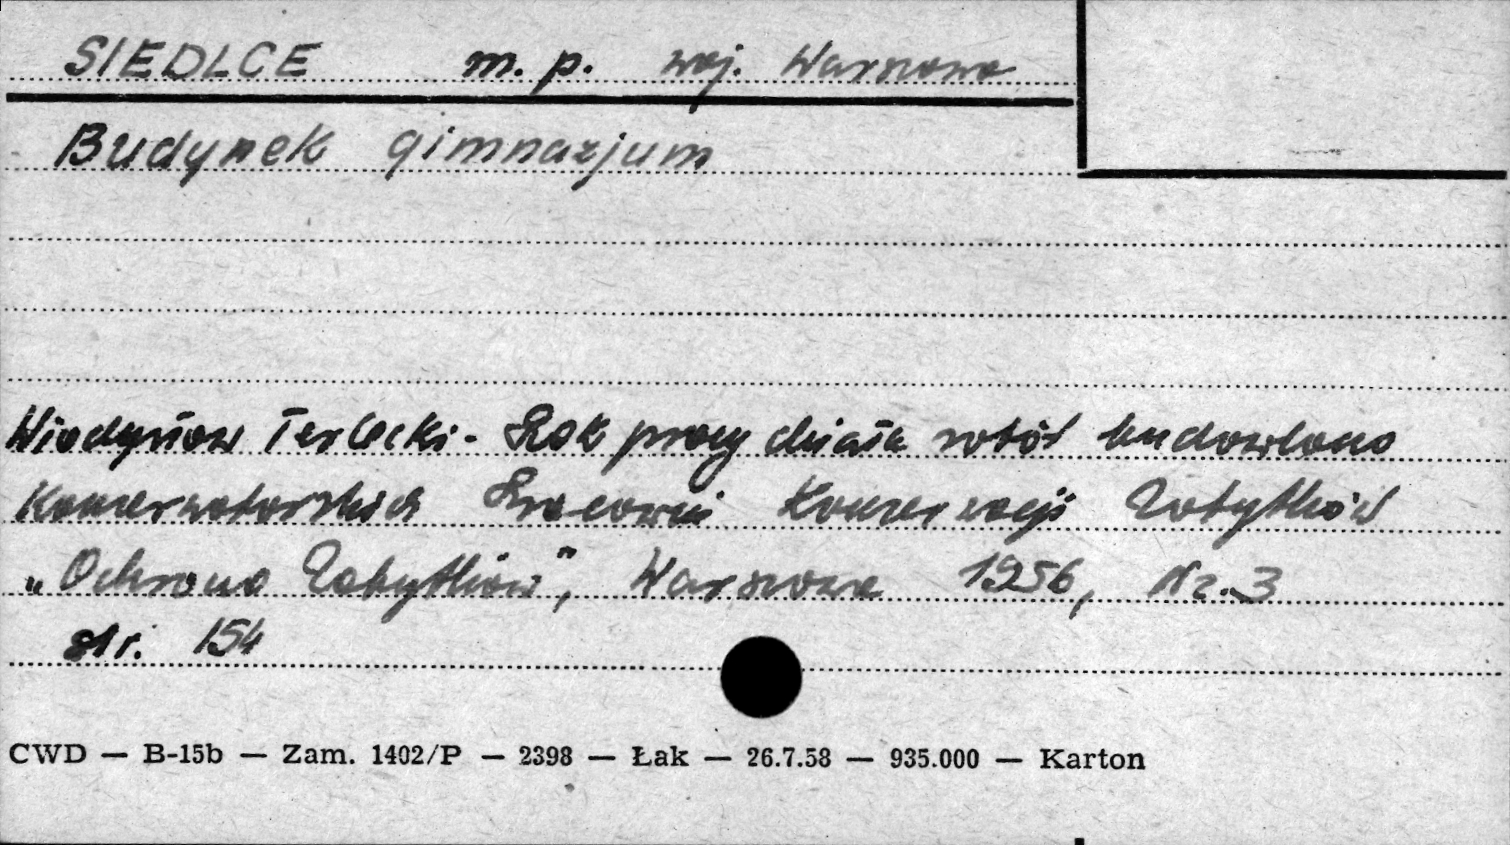 SIEDLCE m. p. woj. Warszawa
Budynek gimnazjum
Władysław Terlecki - Rok pracy działu robót budowlano
Konserwatorskich Pracowni Konserwacji Zabytków
„Ochrona Zabytków", Warszawa 1956, Nr. 3
str. 154
CWD — B-15b — Zam. 1402/P — 2398 — Łak — 26.7.58 — 935.000 — Karton